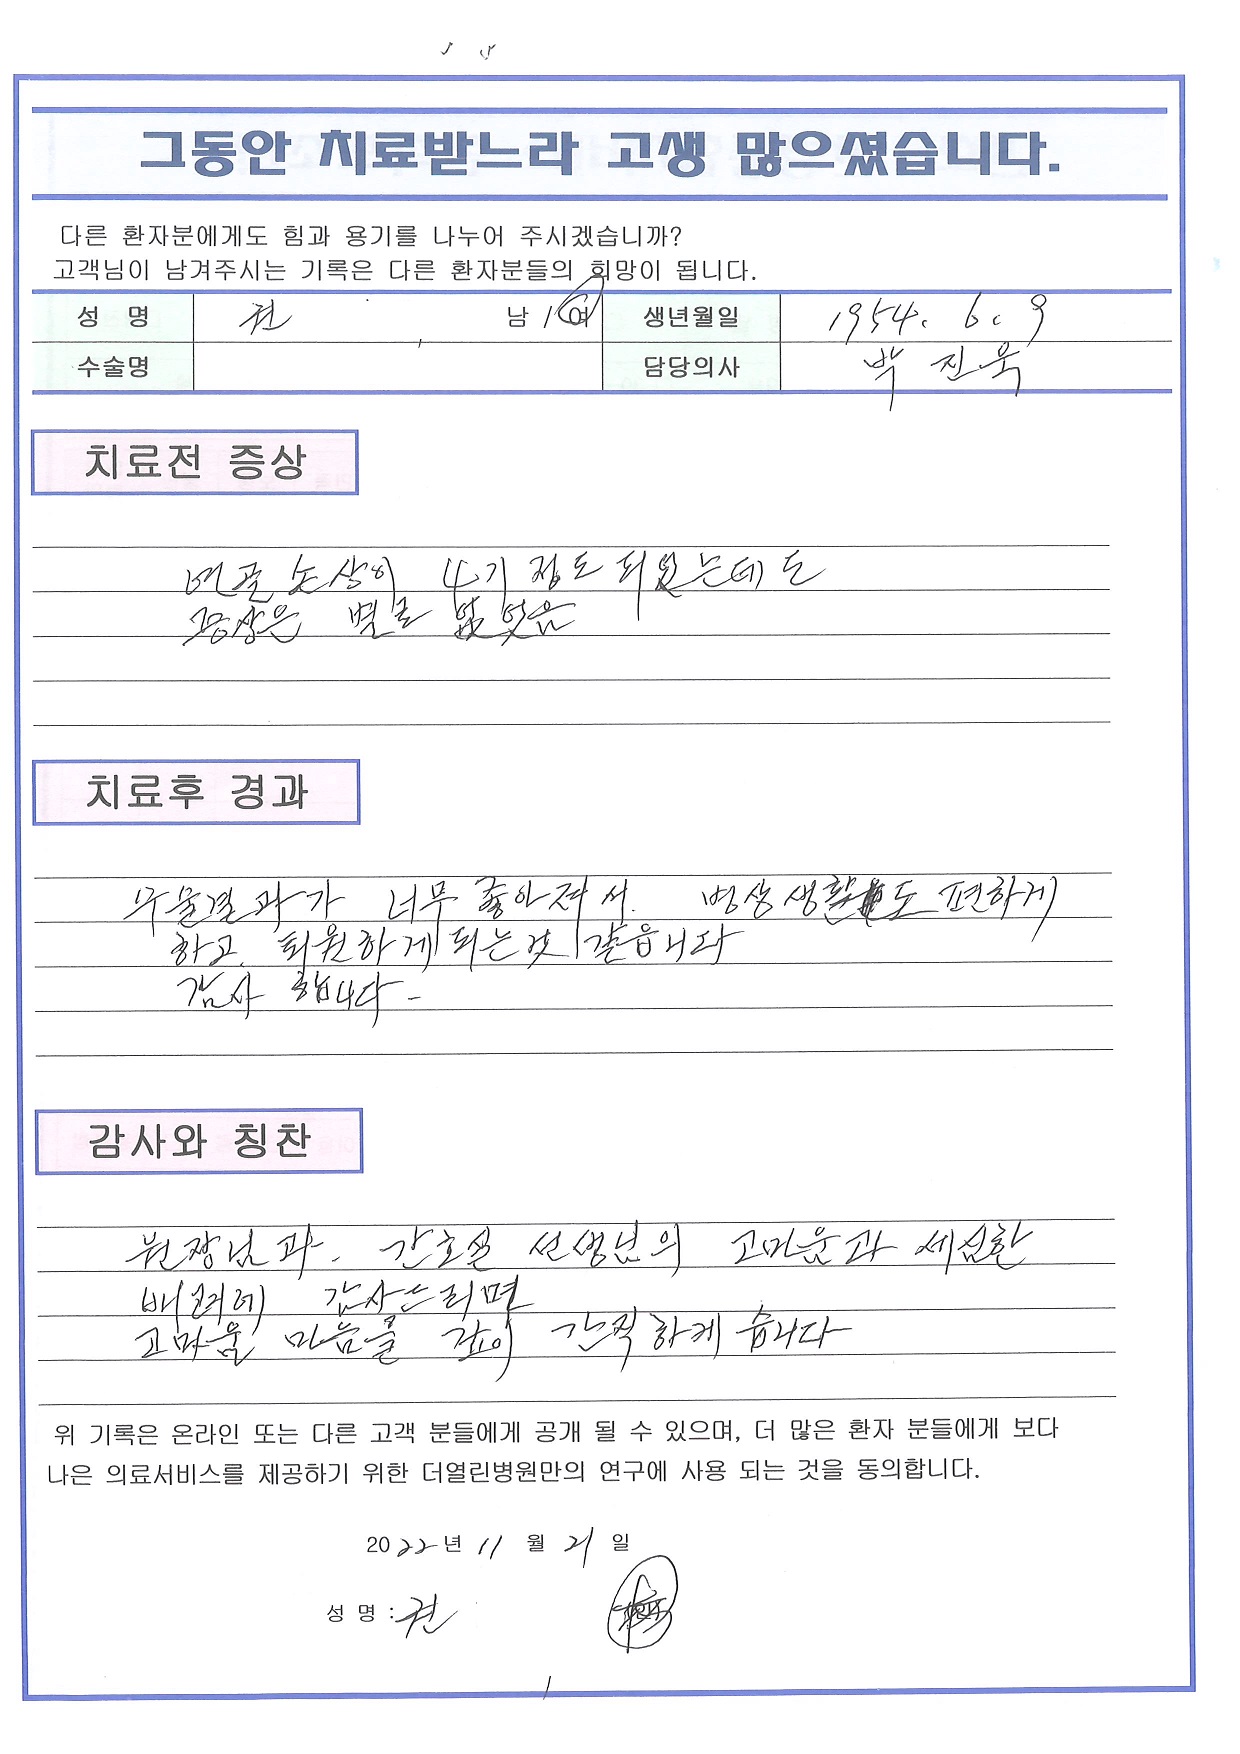 그동안 치료받느라 고생 많으셨습니다.
다른 환자분에게도 힘과 용기를 나누어 주시겠습니까?
고객님이 남겨주시는 기록은 다른 환자분들의 희망이 됩니다.
성 명 권 남 / 여 생년월일 1954. 6. 9
수술명 담당의사 박 진욱
치료전 증상
연골 손상이 4기 정도 되었는데도
증상은 별로 없었음
치료후 경과
수술결과가 너무 좋아져서. 병상생활도 편하게
하고. 퇴원하게 되는것 같읍니다
감사 합니다-
감사와 칭찬
원장님과. 간호실 선생님의 고마운과 세심한
배려에 감사드리며
고마움 마음을 깊이 간직하게습니다
위 기록은 온라인 또는 다른 고객 분들에게 공개 될 수 있으며, 더 많은 환자 분들에게 보다
나은 의료서비스를 제공하기 위한 더열린병원만의 연구에 사용 되는 것을 동의합니다.
2022년 11 월 21 일
성 명 : 권